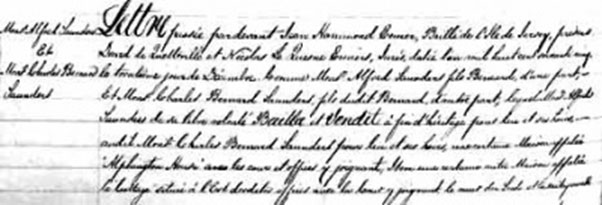 Monsr Alfred Saunders
Et
Monsr Charles Bernard
Saunders
Lettre passée pardevant Jean Hammond Ecuier, Bailli de l'Ile de Jersey, présens
David de Quetteville et Nicolas Le Quesne Ecuiers, Jurés, datée l'an mil huit cent
le troisième jour de Décembre. Comme Monsr Alfred Saunders fils Bernard, d'une part,
Et Monsr Charles Bernard Saunders, fils dudit Bernard, d'autre part, lequel Monsr Alfred
Saunders de sa libre volonté Bailla et Vendit à fin d'héritage pour lui et ses hoirs
audit Monsr Charles Bernard Saunders pour lui et ses hoirs, une certaine Maison appelée
"Alphington House" avec les et offices y joignant, Item une certaine autre Maison appelée
"Cottage" située à l'Est desdits offices avec y joignant, le